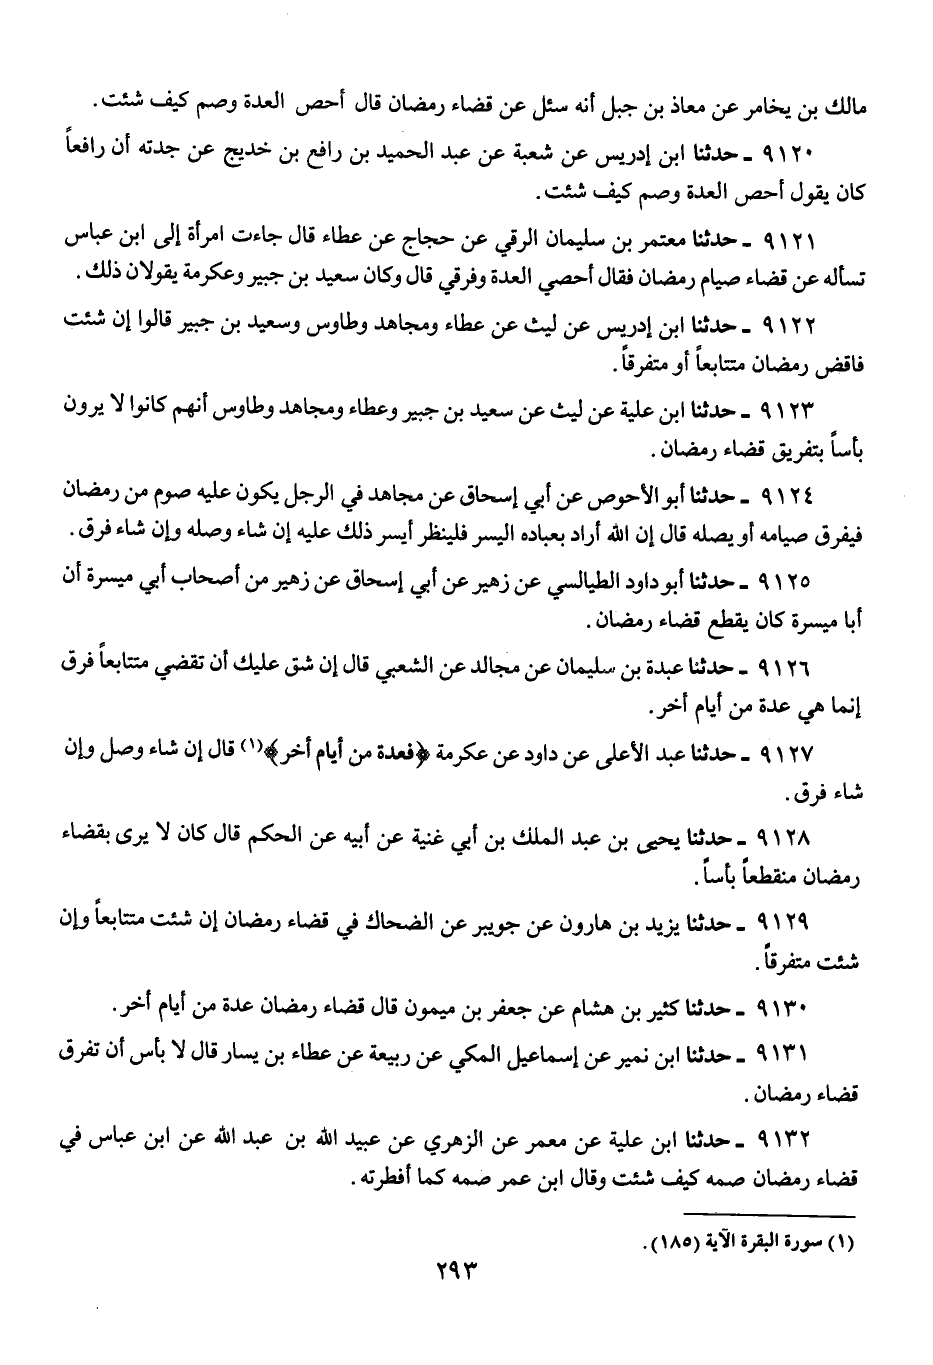 مالك بن يخامر عن معاذ بن جبل أنه سئل عن قضاء رمضان قال أحص العدة وصم كيف شئت.
٩١٢٠ ـ حدثنا ابن إدريس عن شعبة عن عبد الحميد بن رافع بن خديج عن جدته أن رافعاً
كان يقول أحص العدة وصم كيف شئت.
٩١٢١ ـ حدثنا معتمر بن سليمان الرقي عن حجاج عن عطاء قال جاءت امرأة إلى ابن عباس
تسأله عن قضاء صيام رمضان فقال أحصي العدة وفرقي قال وكان سعيد بن جبير وعكرمة يقولان ذلك.
٩١٢٢ ـ حدثنا ابن إدريس عن ليث عن عطاء ومجاهد وطاوس وسعيد بن جبير قالوا إن شئت
فاقض رمضان متتابعاً أو متفرقاً.
٩١٢٣ ـ حدثنا ابن علية عن ليث عن سعيد بن جبير وعطاء ومجاهد وطاوس أنهم كانوا لا يرون
بأساً بتفريق قضاء رمضان.
٩١٢٤ ـ حدثنا أبو الأحوص عن أبي إسحاق عن مجاهد في الرجل يكون عليه صوم من رمضان
فيفرق صيامه أو يصله قال إن الله أراد بعباده اليسر فلينظر أيسر ذلك عليه إن شاء وصله وإن شاء فرق.
٩١٢٥ ـ حدثنا أبو داود الطيالسي عن زهير عن أبي إسحاق عن زهير من أصحاب أبي ميسرة أن
أبا ميسرة كان يقطع قضاء رمضان.
٩١٢٦ ـ حدثنا عبدة بن سليمان عن مجالد عن الشعبي قال إن شق عليك أن تقضي متتابعاً فرق
إنما هي عدة من أيام أخر.
٩١٢٧ ـ حدثنا عبد الأعلى عن داود عن عكرمة ﴿فعدة من أيام أخر﴾(١) قال إن شاء وصل وإن
شاء فرق.
٩١٢٨ ـ حدثنا يحيى بن عبد الملك بن أبي غنية عن أبيه عن الحكم قال كان لا يرى بقضاء
رمضان منقطعاً بأساً.
٩١٢٩ ـ حدثنا يزيد بن هارون عن جويبر عن الضحاك في قضاء رمضان إن شئت متتابعاً وإن
شئت متفرقاً.
٩١٣٠ ـ حدثنا كثير بن هشام عن جعفر بن ميمون قال قضاء رمضان عدة من أيام أخر.
٩١٣١ ـ حدثنا ابن نمير عن إسماعيل المكي عن ربيعة عن عطاء بن يسار قال لا بأس أن تفرق
قضاء رمضان.
٩١٣٢ ـ حدثنا ابن علية عن معمر عن الزهري عن عبيد الله بن عبد الله عن ابن عباس في
قضاء رمضان صمه كيف شئت وقال ابن عمر صمه كما أفطرته.
(١) سورة البقرة الآية (١٨٥).
٢٩٣